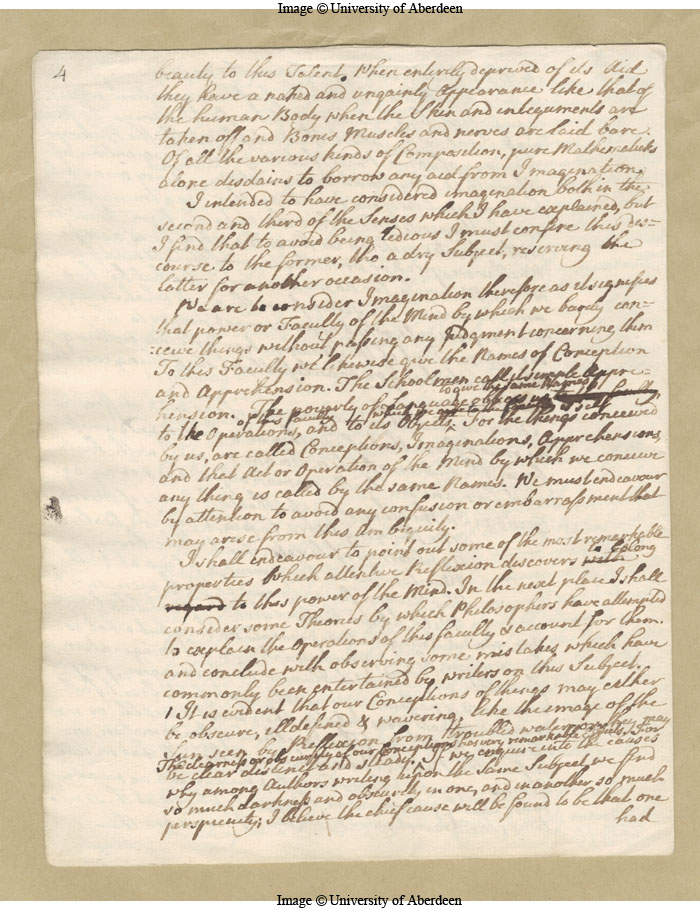 Image © University of Aberdeen
4
beauty to this Talent. When entirely deprived of its Aid
they have a naked and ungainly Appearance like that of
the human Body when the Skin and integuments are
taken off and Bones Muscles and nerves are laid bare.
Of all the various kinds of Composition, pure Mathematicks
alone disdains to borrow any aid from Imagination.
I intended to have considered imagination both in the
second and third of the Senses which I have explained, but
I find that to avoid being tedious I must confine this dis=
course to the former, tho a dry Subject, reserving the
latter for another occasion.
We are to consider Imagination therefore as it signifies
that power or Faculty of the Mind by which we barely con=
=ceive things without passing any Judgment concerning them
To this Faculty we likewise give the Names of Conception
and Apprehension. The Schoolmen call it simple Appre=
hension. The poverty of Language obliges us to give the same Names
to this faculty
to the Operations, and to its Objects; For the things conceived
by us, are called Conceptions, Imaginations, Apprehensions,
and that Act or Operation of the Mind by which we conceive
any thing is called by the same Names. We must endeavour
by attention to avoid any confusion or embarrassment that
may arise from this Ambiguity.
I shall endeavour to point out some of the most remarkable
properties which attentive Reflexion discovers to belong
to this power of the Mind. In the next place I shall
consider some Theories by which Philosophers have attempted
to explain the Operations of this faculty & account for them.
and conclude with observing some mistakes which have
commonly been entertained by writers on this Subject.
1 It is evident that our Conceptions of things may either
be obscure, illdefined & wavering, like the image of the
Sun seen by Reflexion from troubled water, or they may
be clear distinct and steady.
The clearness or obscurity of our conceptions has very remarkable effects. For
If we enquire into the causes
why among Authors writing upon the same Subject, we find
so much darkness and obscurity in one, and in another so much
perspicuity; I believe the chief cause will be found to be that one
had
Image © University of Aberdeen